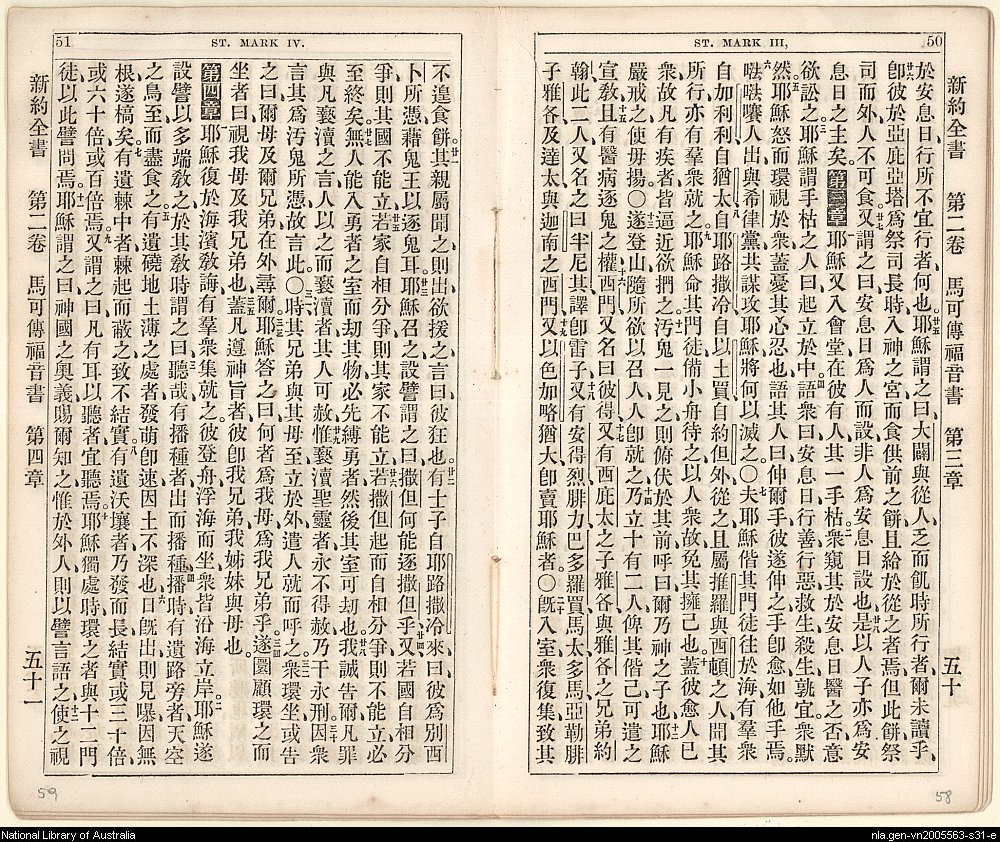 50
ST. MARK III,
新約全書 第二卷 馬可傳福音書 第三章 五十
於安息日行所不宜行者何也耶穌謂之曰大闢與從人乏而飢時所行者爾未讀乎
卽彼於亞庇亞塔爲祭司長時入神之宮而食供前之餅且給於從之者焉但此餅祭
司而外人不可食又謂之曰安息日爲人而設非人爲安息日設也是以人子亦爲安
息日之主矣第三章耶穌又入會堂在彼有人其一手枯衆窺其於安息日醫之否意
欲訟之耶穌謂手枯之人曰起立於中語衆曰安息日行善行惡救生殺生孰宜衆默
然耶穌怒而環視於衆蓋憂其心忍也語其人曰伸爾手彼遂伸之手卽愈如他手焉
㗖㗖嚷人出與希律黨共謀攻耶穌將何以滅之〇夫耶穌偕其門徒往於海有羣衆
自加利利自猶太自耶路撒冷自以土買自約但外從之且屬推羅與西頓之人聞其
所行亦有羣衆就之耶穌命其門徒備小舟待之以人衆故免其擁己也蓋彼愈人已
衆故凡有疾者皆逼近欲捫之污鬼一見之則俯伏於其前呼曰爾乃神之子也耶穌
嚴戒之使毋揚〇遂登山隨所欲以召人人卽就之乃立十有二人俾其偕己可遣之
宣敎且有醫病逐鬼之權西門又名曰彼得又有西庇太之子雅各與雅各之兄弟約
翰此二人又名之曰半尼其譯卽雷子又有安得烈腓力巴多羅買馬太多馬亞勒腓
子雅各及達太與迦南之西門又以色加略猶大卽賣耶穌者〇旣入室衆復集致其
58
51
ST. MARK IV.
不遑食餅其親屬聞之則出欲援之言曰彼狂也有士子自耶路撒冷來曰彼爲別西
卜所憑藉鬼王以逐鬼耳耶穌召之設譬謂之曰撒但何能逐撒但乎又若國自相分
爭則其國不能立若家自相分爭則其家不能立若撒但起而自相分爭則不能立必
至終矣無人能入勇者之室而刧其物必先縛勇者然後其室可刧也我誠告爾凡罪
與凡褻瀆之言人以之而褻瀆者其人可赦惟褻瀆聖靈者永不得赦乃干永刑因衆
言其爲污鬼所憑故言此〇時其兄弟與其母至立於外遣人就而呼之衆環坐或告
之曰爾母及爾兄弟在外尋爾耶穌答之曰何者爲我母爲我兄弟乎遂圜顧環之而
坐者曰視我母及我兄弟也蓋凡遵神旨者彼卽我兄弟我姊妹與母也
第四章耶穌復於海濱敎誨有羣衆集就之彼登舟浮海而坐衆皆沿海立岸耶穌遂
設譬以多端敎之於其敎時謂之曰聽哉有播種者出而播種播時有遺路旁者天空
之鳥至而盡食之有遺磽地土薄之處者發萌卽速因土不深也日旣出則見曝因無
根遂槁矣有遺棘中者棘起而蔽之致不結實有遺沃壤者乃發而長結實或三十倍
或六十倍或百倍焉又謂之曰凡有耳以聽者宜聽焉耶穌獨處時環之者與十二門
徒以此譬問焉耶穌謂之曰神國之奧義賜爾知之惟於外人則以譬言語之使之視
新約全書 第二卷 馬可傳福音書 第四章 五十一
59
National Library of Australia
nla.gen-vn2005563-s31-e